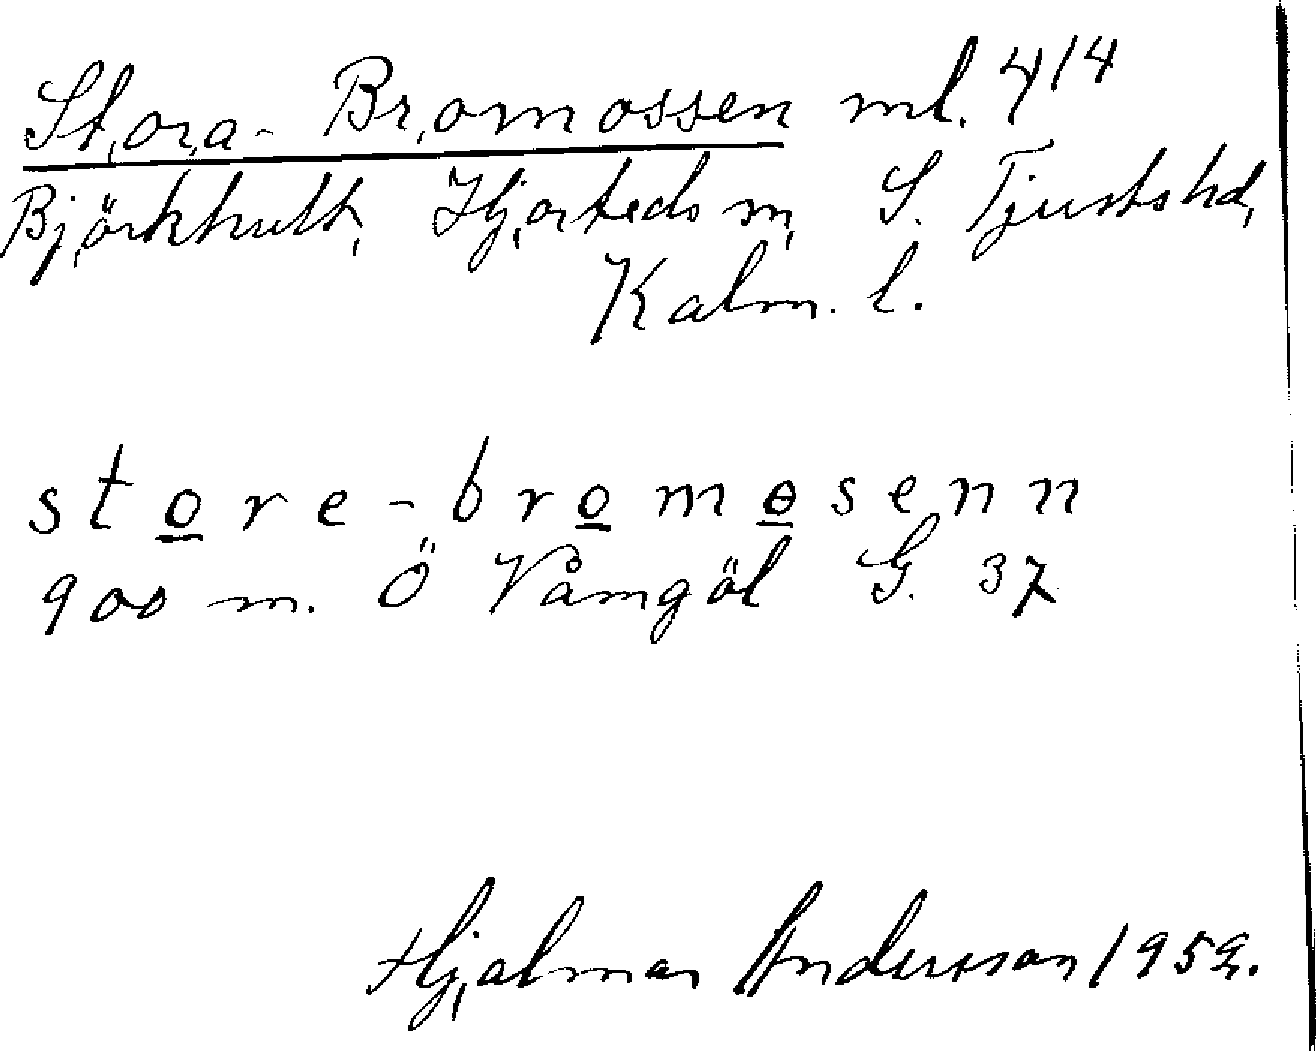 Stora- Bromossen ml. 414
Björkhult, Hjorteds sn, S. Tjusts hd,
Kalm. l.
store-bromosenn
900 m. Ö Våmgöl G. 37
Hjalmar Andersson 1959.